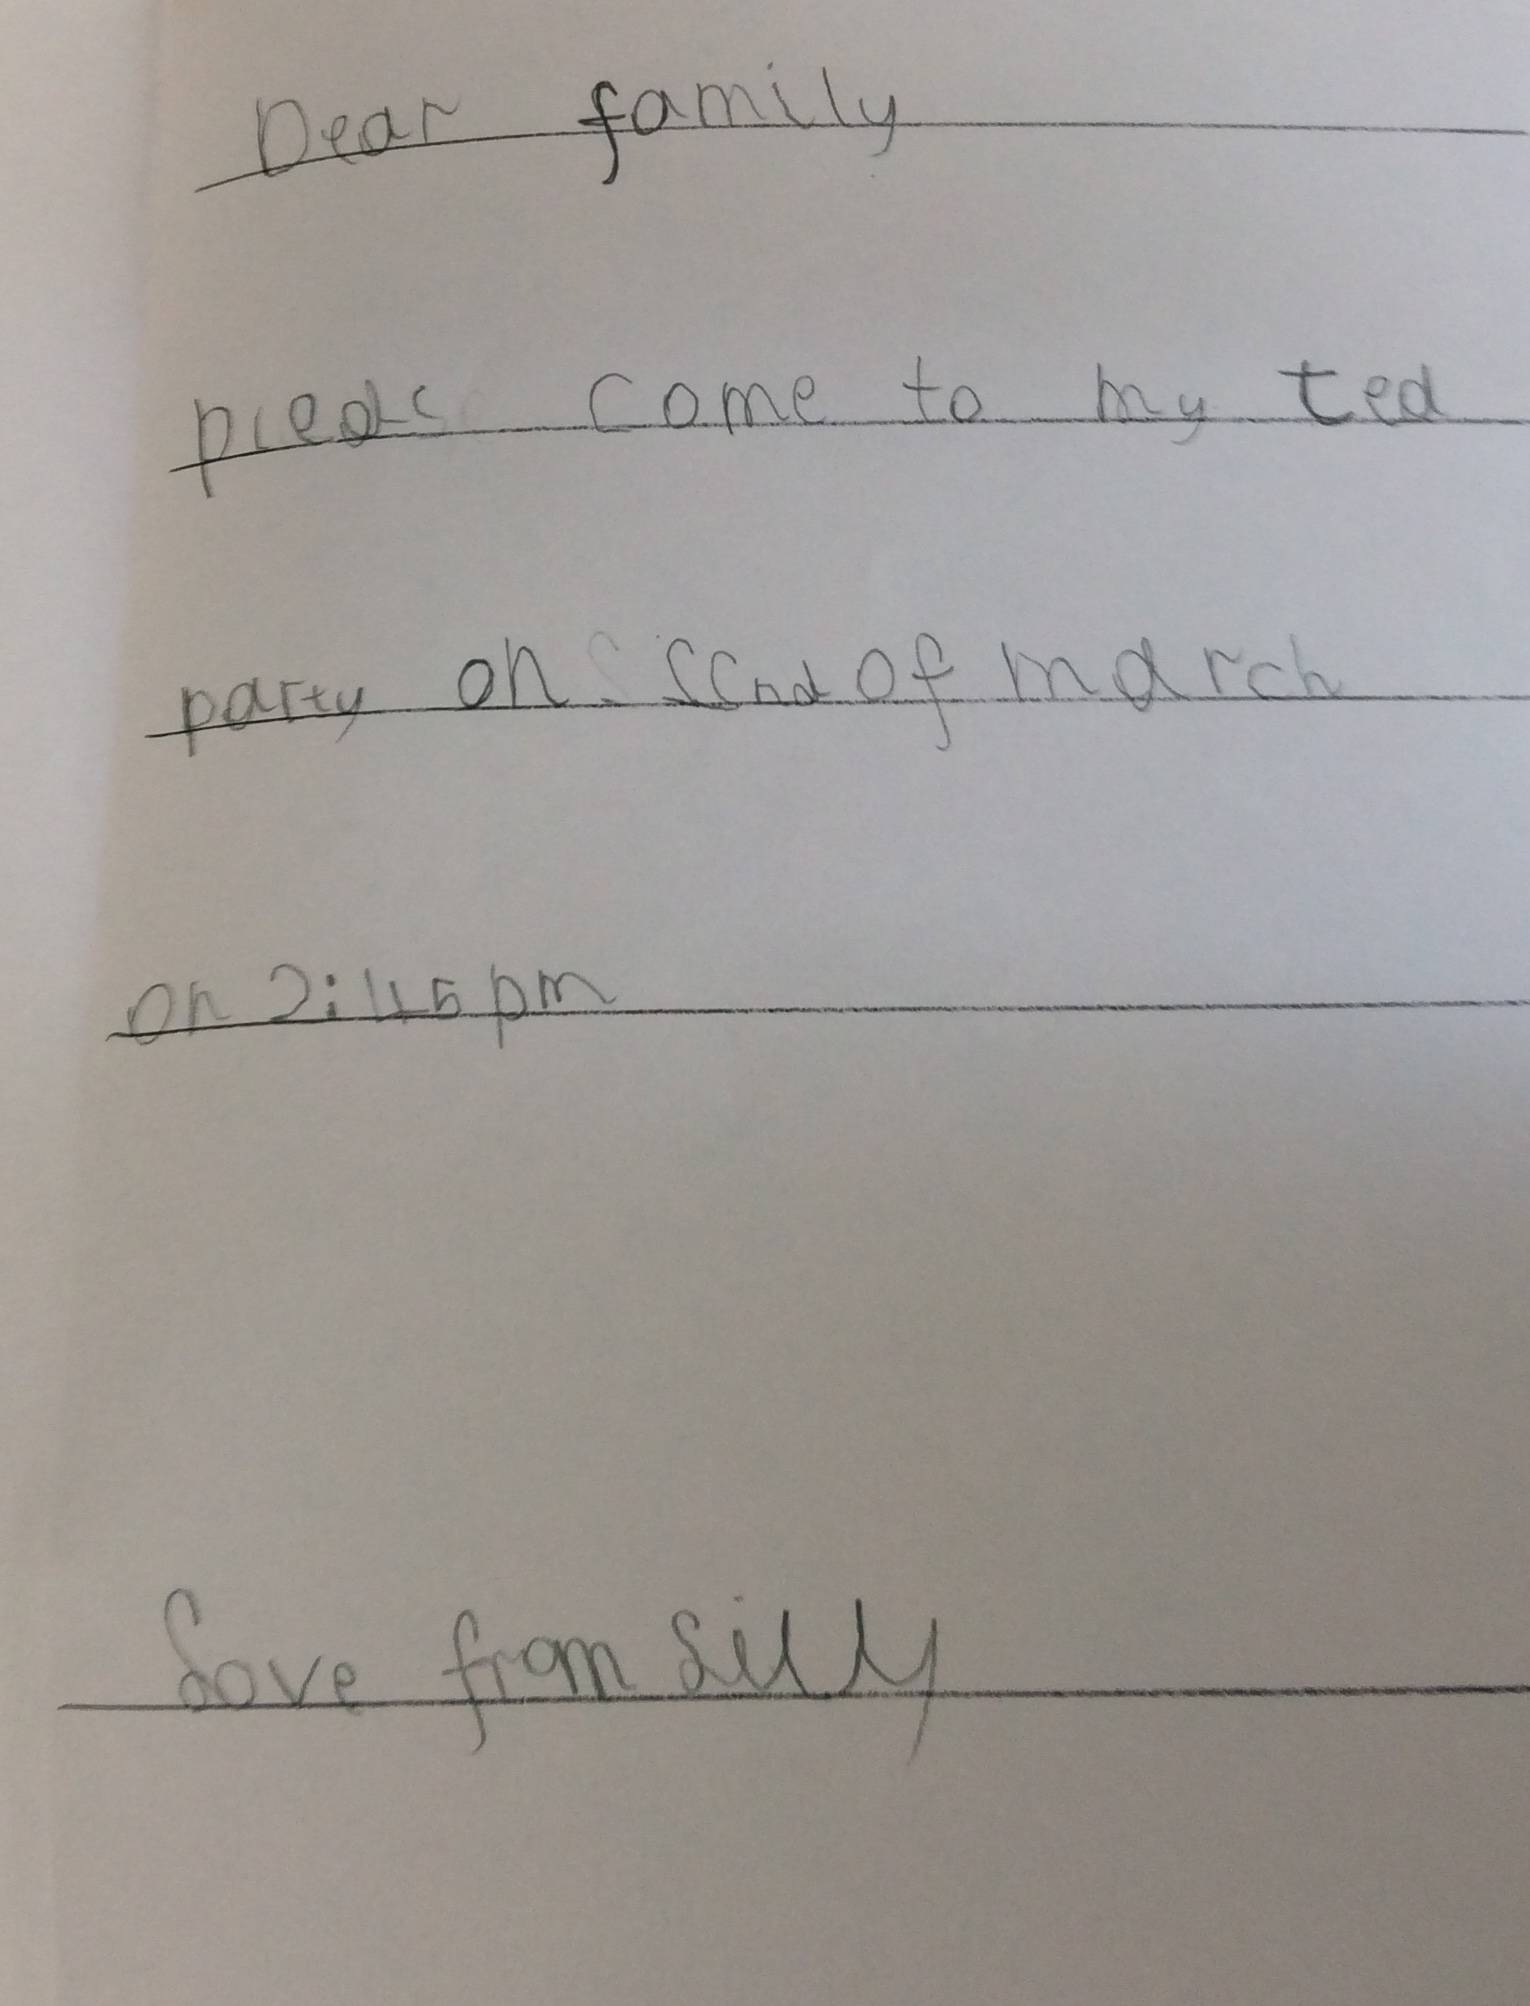 Dear family
pleas come to my tea
party on scnd of march
on 2:45 pm
Love from Silly